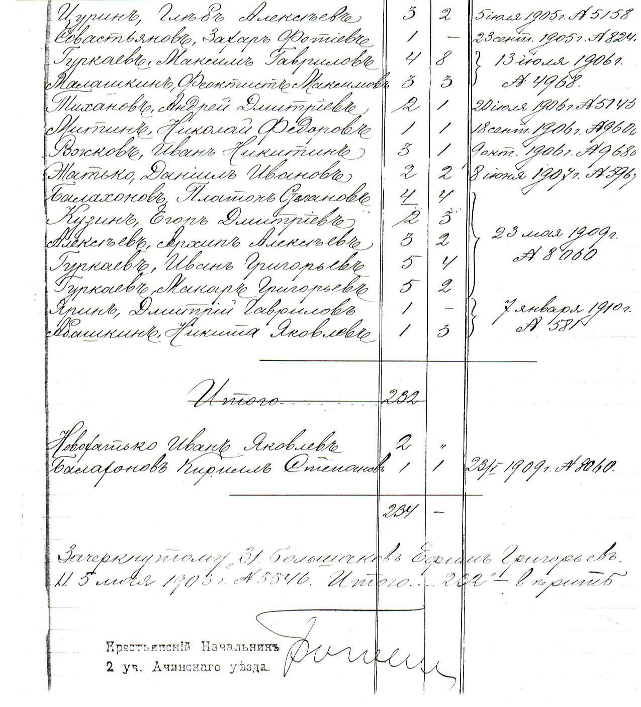 Цуринъ, Глѣбъ Алексѣевъ 3 2 5 iюля 1905 г. № 5158
Севастьяновъ, Захаръ Фотіевъ 1 - 23 сент. 1905 г. № 824
Гуркаевъ, Максимъ Гавриловъ 4 8 } 13 iюля 1906 г.
Малашкинъ, Феоктистъ Максимовъ 3 3 № 4968.
Тихановъ, Андрей Дмитріевъ 2 1 20 iюля 1906 г. № 5145
Митинъ, Николай Федоровъ 1 1 18 сент. 1906 г. № 960
Вожковъ, Иванъ Никитинъ 3 1 9 окт. 1906 г. № 9680
Жатько, Даніилъ Ивановъ 2 2 8 iюня 1907 г. № 396
Балахоновъ, Платонъ 4 4
Кузинъ, Егоръ Дмитріевъ 2 3
Алексѣевъ, Архипъ Алексѣевъ 3 2 } 23 мая 1909 г.
Гуркаевъ, Иванъ Григорьевъ 5 4 № 8060
Гуркаевъ, Макаръ Григорьевъ 5 2
Яринъ, Дмитрій Гавриловъ 1 - } 7 января 1910 г.
Абашкинъ, Никита Яковлевъ 1 3 № 581
Итого 232
Новохатько Иванъ Яковлевъ 2 "
Балахоновъ Кириллъ Степановъ 1 1 23/V 1909 г. № 8060.
234 -
Зачеркнутому „31. Большаковъ Ефимъ Григорьевъ.
1 1 5 1905 г. № 5546. Итого... 232"
Крестьянскій Начальникъ
2 уч. Ачинскаго уѣзда